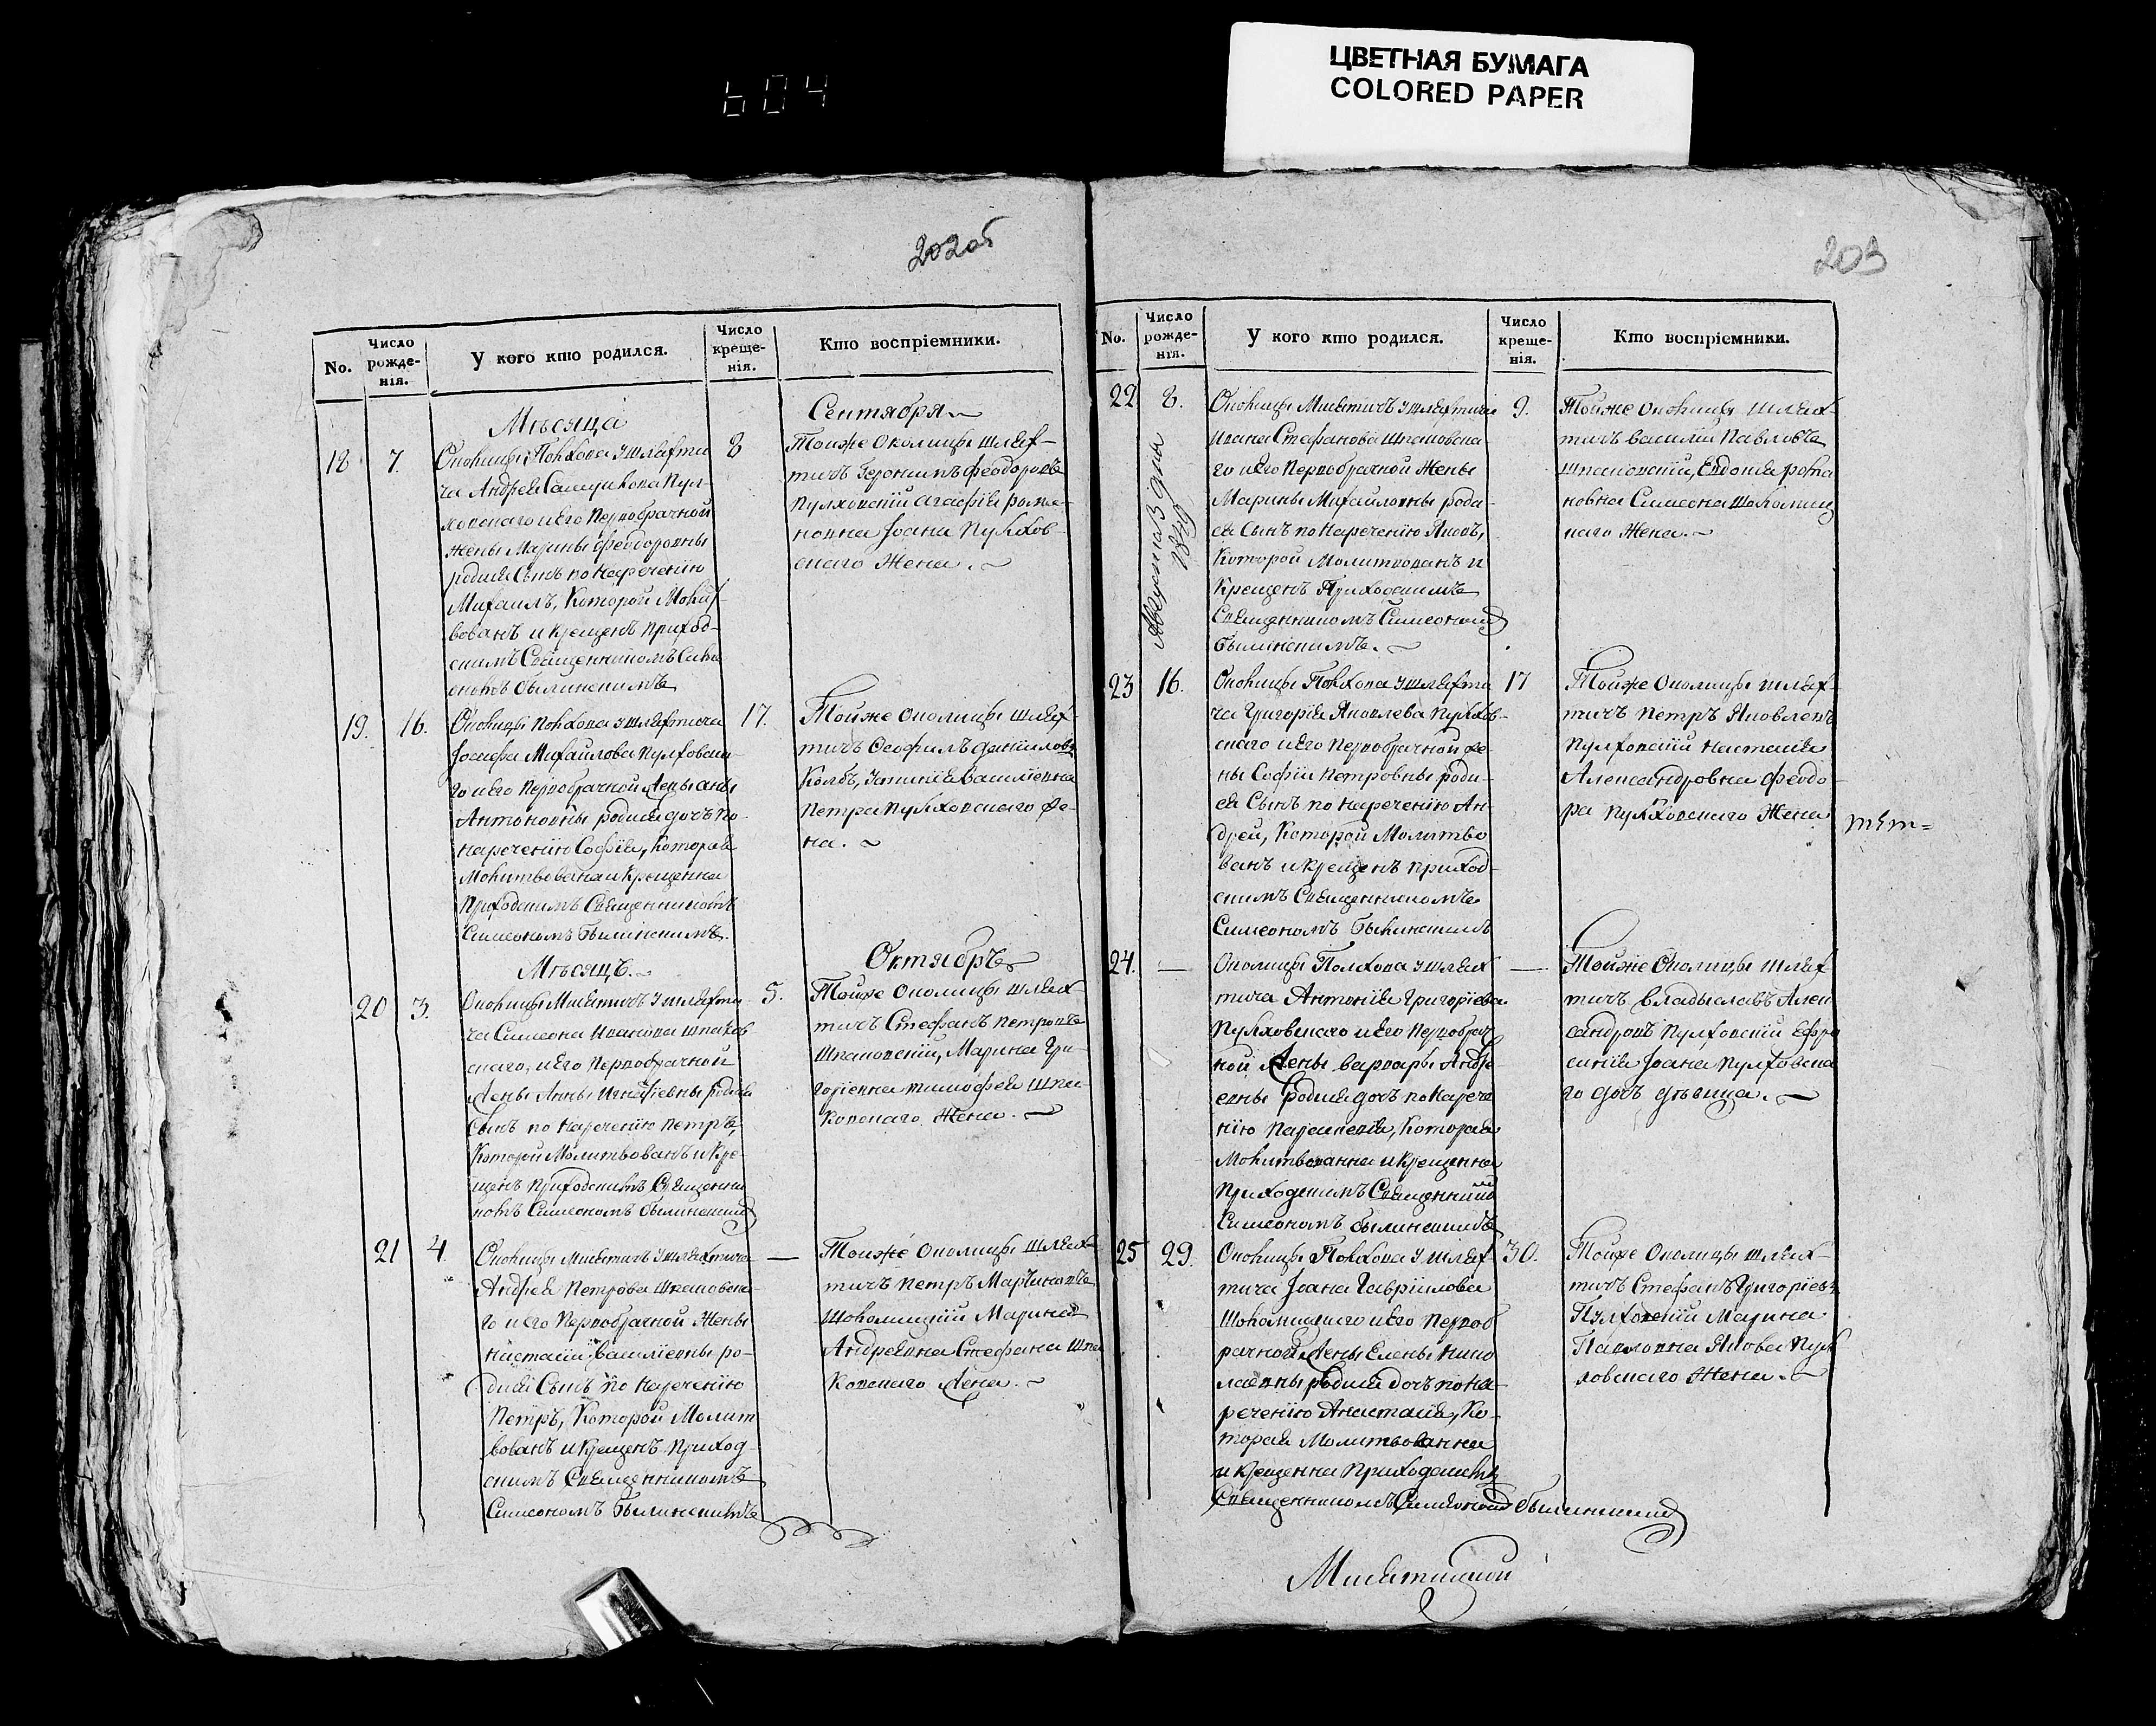 604
ЦВЕТНАЯ БУМАГА
COLORED PAPER
202об
No.
Число рожде-нія.
У кого кто родился.
Число креще-нія.
Кто воспріемники.
Мѣсяца
Сентября
18
7.
Околицы Полхова у шляхти
ча Андрея
Пул-
ховскаго и Его Первобрачной
Жены Марины Феодоровны
родился Сынъ по Наречению
Михаилъ, Которой Молит-
вованъ и крещенъ приход-
скимъ Священникомъ Симе
ономъ Былинскимъ
8
Тоиже Околицы шлях-
тичъ Геронимъ Феодоровъ
Пулховскій Агафія рома-
новна Іоана Пулхов-
скаго Жена.
19.
16.
Околицы Полхова у шляхтича
Іосифа Михаилова Пулховска-
го и Его Первобрачной Жены Аны
Антоновны родися дочь по
наречению Софія, Которая
Молитвована и Крещенна
Приходскимъ Священникомъ
Симеономъ Былинскимъ.
17.
Тойже Околицы шлях-
тичъ Феофилъ Даниловъ
Василіевна
Петра Пулховскаго Же-
на.
Мѣсяцъ.
Октябрь
20
3.
Околицы Мисятичъ у шляхти-
ча Симеона Иванова Шпаков
скаго, и Его Первобрачной
Жены Анны Игнатіевны родися
Сынъ по Наречению Петръ,
Которой Молитвованъ и Кре-
щенъ Приходскимъ Священни
комъ Симеономъ Былинскимъ
5.
Тойже Околицы шлях-
тичъ Стефанъ Петровъ
Шпаковскій, Марина Гри-
горіевна Тимофея Шпа-
ковскаго Жена.
21
4
Околицы Мисятичъ у шляхтича
Андрея Петрова Шпаковска-
го и Его Первобрачной Жены
Настасіи Василіевны ро-
дися Сынъ по Наречению
Петръ, Которой Молит
вованъ и Крещенъ Приход
скимъ Священникомъ
Симеономъ Былинскимъ
—
Тоиже Околицы шлях-
тичъ Петръ Мартиновъ
Шоломицкій Марина
Андреевна Стефана Шпа
ковскаго Жена.
203
No.
Число рожде-нія.
У кого кто родился.
Число креще-нія.
Кто воспріемники.
22
8.
Августа 3 дня
1839
Околицы Мисятичъ у шляхтича
Ивана Стефанова Шпаковска
го и Его Первобрачной Жены
Марины Михайловны роди-
ся Сынъ по Наречению Яковъ,
Которой Молитвованъ и
Крещенъ Приходскимъ
Священникомъ Симеономъ
Былинскимъ.
9.
Тойже Околицы шлях-
тичъ Василій Павловъ
Шпаковскій, Евдокія рома
новна Симеона Шоломиц
каго Жена.
23
16.
Околицы Полхова у шляхти
ча Григорія Яковлева Пулхов-
скаго и Его Первобрачной Же-
ны Софіи Петровны роди-
ся Сынъ по наречению Ан-
дрей, Которой Молитво
ванъ и крещенъ приход-
скимъ Священникомъ
Симеономъ Былинскимъ
17
Тойже Околицы шлях-
тичъ Петръ Яковлевъ
Пулховскій Настасія
Александровна Феодо-
ра Пулховскаго Жена
24.
—
Околицы Полхова у шлях
тича Антонія Григоріева
Пулховскаго и Его Первобрач
ной Жены Варвары Андре-
евны родися дочь по Нарече
нію Параскевія, Которая
Молитвованна и Крещенна
Приходскимъ Священнико
Симеономъ Былинскимъ
—
Тойже Околицы шлях
тичъ Владыславъ Алек
сандровъ Пулховскій Ефро
синія Іоана Пулховска
го дочь дѣвица.
25
29.
Околицы Полхова у шлях-
тича Іоана Гавріилова
Шоломицкаго и Его Первоб
рачной Жены Елены Нико
лаевны родися дочь по На-
речению Анастасія, Ко-
торая Молитвованна
и крещенна Приходскимъ
Священникомъ Симеономъ Былинскимъ
30.
Тойже Околицы шлях-
тичъ Стефанъ Григоріевъ
Пулховскій Марина
Павловна Якова Пул
ховскаго Жена.
Мисятицкой